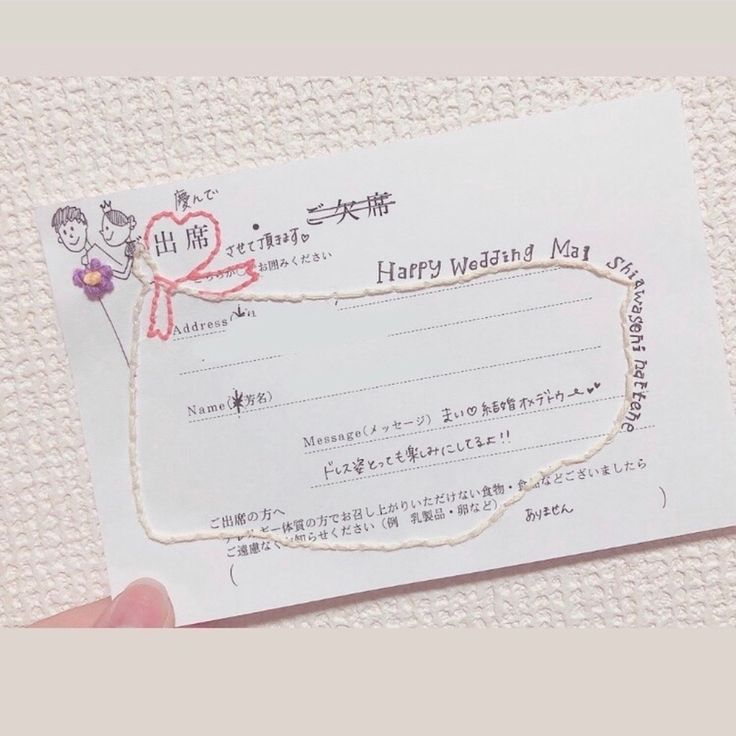 慶んで
出席 ・ ご欠席
させて頂きます♡
お囲みください
Happy Wedding Mai Shiawaseni nattene
Address
Name(芳名)
Message(メッセージ) まい♡結婚オメデトウ〜♥♥
ドレス姿とっても楽しみにしてるよ!!
ご出席の方へ
アレルギー体質の方でお召し上がりいただけない食物・食品などございましたら
ご遠慮なくお知らせください(例 乳製品・卵など)
( ありません )